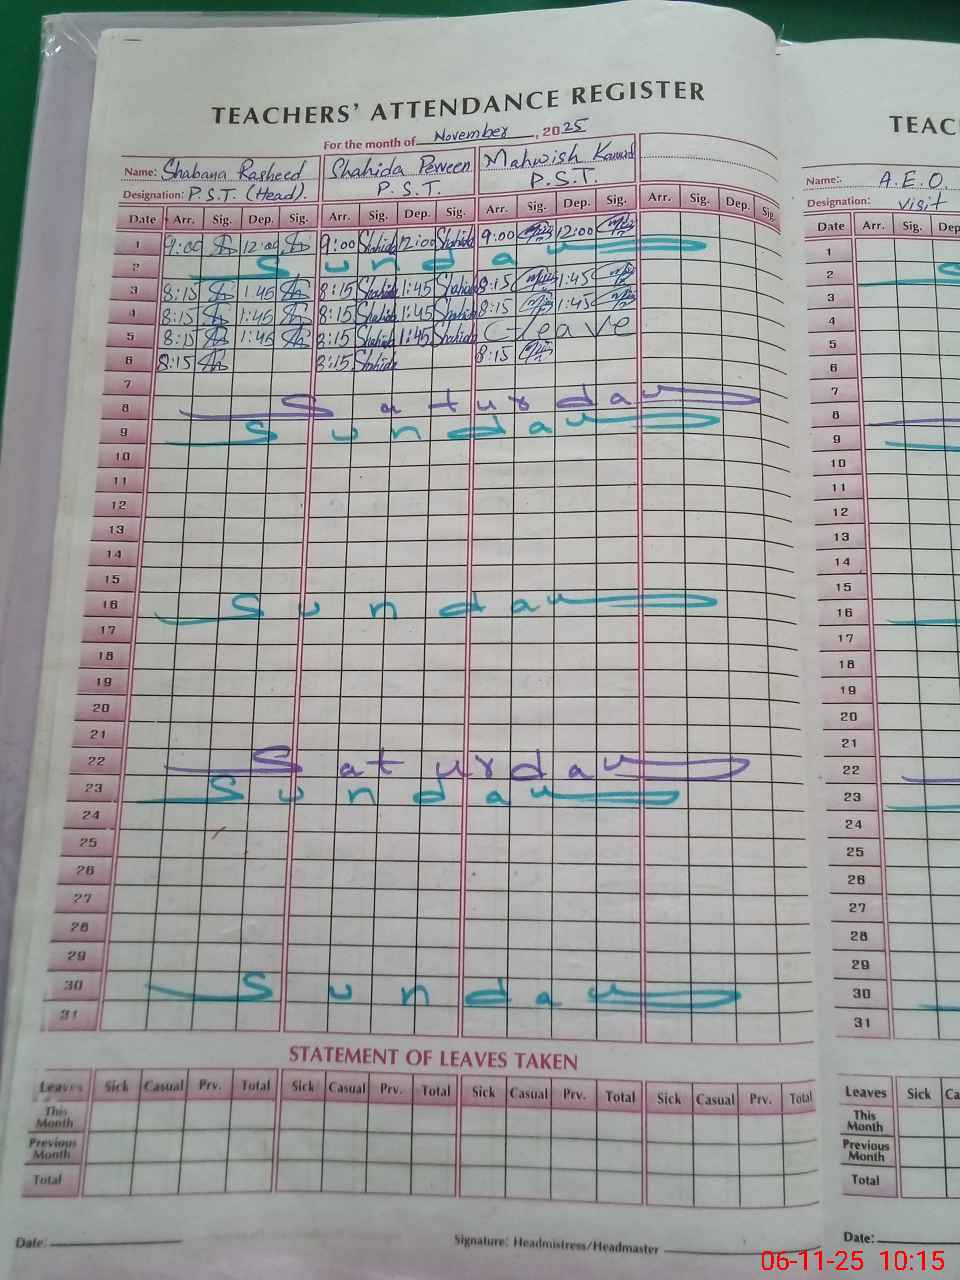 TEACHERS' ATTENDANCE REGISTER
For the month of November, 2025
Name: Shabana Rasheed Shahida Perveen Mahwish Kanwal
Designation: P.S.T. (Head). P.S.T. P.S.T.
Date Arr. Sig. Dep. Sig. Arr. Sig. Dep. Sig. Arr. Sig. Dep. Sig. Arr. Sig. Dep. Sig.
1 9:00 12:00 9:00 Shahida 12:00 Shahida 9:00 12:00
2 Sunday
3 8:15 1:45 8:15 Shahida 1:45 Shahida 8:15 1:45
4 8:15 1:45 8:15 Shahida 1:45 Shahida 8:15 1:45
5 8:15 1:45 8:15 Shahida 1:45 Shahida C-leave
6 8:15 8:15 Shahida 8:15
7
8 Saturday
9 Sunday
10
11
12
13
14
15
16 Sunday
17
18
19
20
21
22 Saturday
23 Sunday
24
25
26
27
28
29
30 Sunday
31
STATEMENT OF LEAVES TAKEN
Leaves Sick Casual Prv. Total Sick Casual Prv. Total Sick Casual Prv. Total Sick Casual Prv. Total
This Month
Previous Month
Total
Date: Signature: Headmistress/Headmaster
TEAC
Name: A.E.O.
Designation: visit
Date Arr. Sig. Dep
1
2
3
4
5
6
7
8
9
10
11
12
13
14
15
16
17
18
19
20
21
22
23
24
25
26
27
28
29
30
31
Leaves Sick Ca
This Month
Previous Month
Total
Date:
06-11-25 10:15